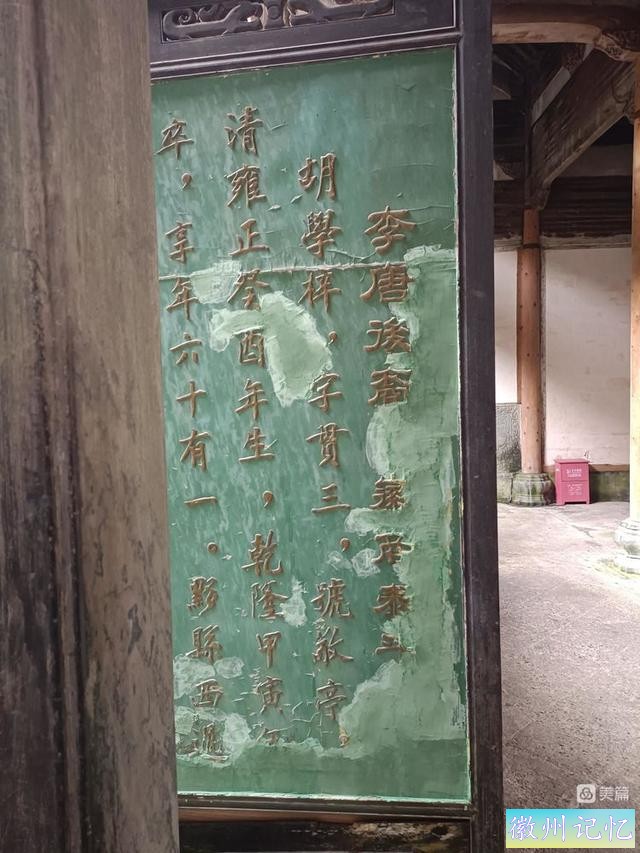 李唐後裔 泰
胡學梓，字貫三，號敬亭，
清雍正癸酉年生，乾隆甲寅
卒，享年六十有一。黟縣西遞
美篇
徽州记忆